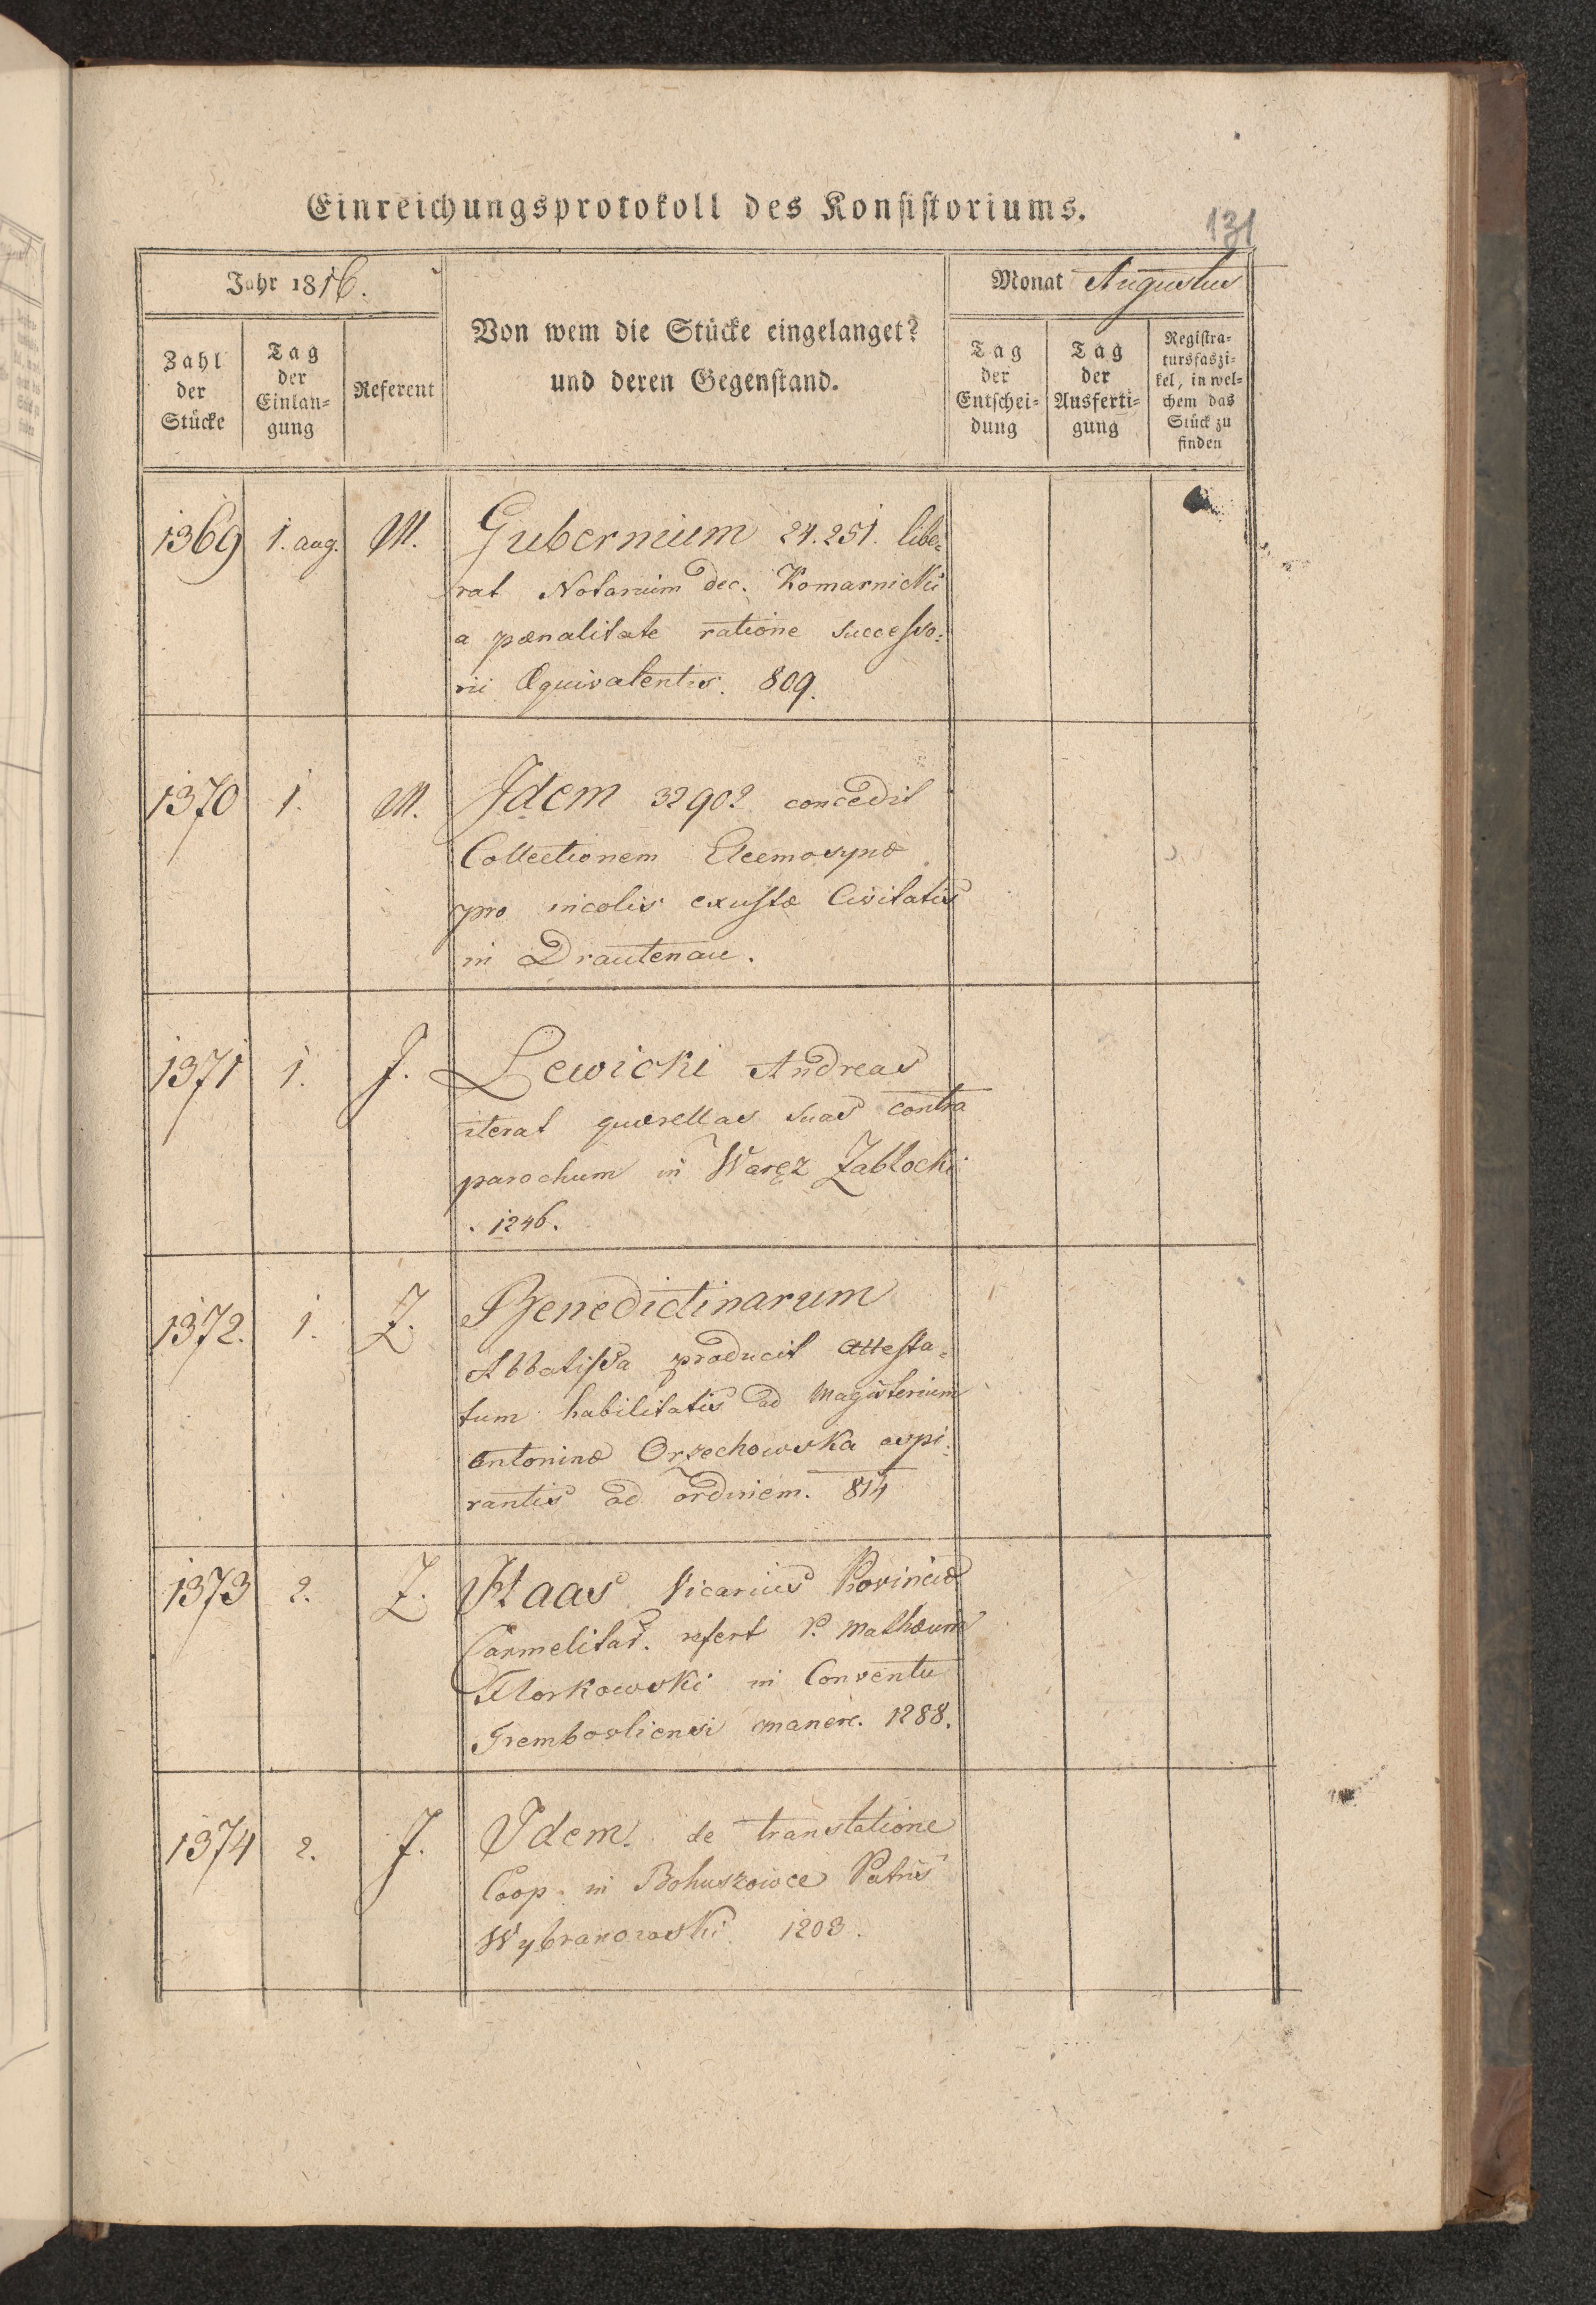 Einreichungsprotokoll des Konsistoriums.
131
Jahr 1816.
Monat Augustus
Zahl der Stücke
Tag der Einlan=gung
Referent
Von wem die Stücke eingelanget?
und deren Gegenstand.
Tag der Entschei=dung
Tag der Ausferti=gung
Registra=tursfaszi=kel, in wel=chem das Stück zu finden
1369 1. aug. M. Gubernium 24.251. libe=
rat Notarium dec. Komarnicki
a pœnalitate ratione successo=
rii Æquivalentis. 809.
1370 1. M. Idem 32902 concedit
Collectionem Eleemosynæ
pro incolis exustæ Civitatis
in Drautenau.
1371 1. J. Lewicki Andreas
iterat quærellas suas contra
parochum in Waręz Zabłocki
. 1246.
1372. 1. Z. Benedictinarum
Abbatissa producit attesta=
tum habilitatis ad Magisterium
Antoninæ Orzechowska aspi=
rantis ad ordinem. 814
1373 2. Z. Haas Vicarius Provinciæ
Carmelitar. refert P. Mathæum
Florkowski in Conventu
Trembovliensi manere. 1288.
1374 2. J. Idem. de translatione
Coop. in Bohuszowce Patris
Wybranowski. 1203.